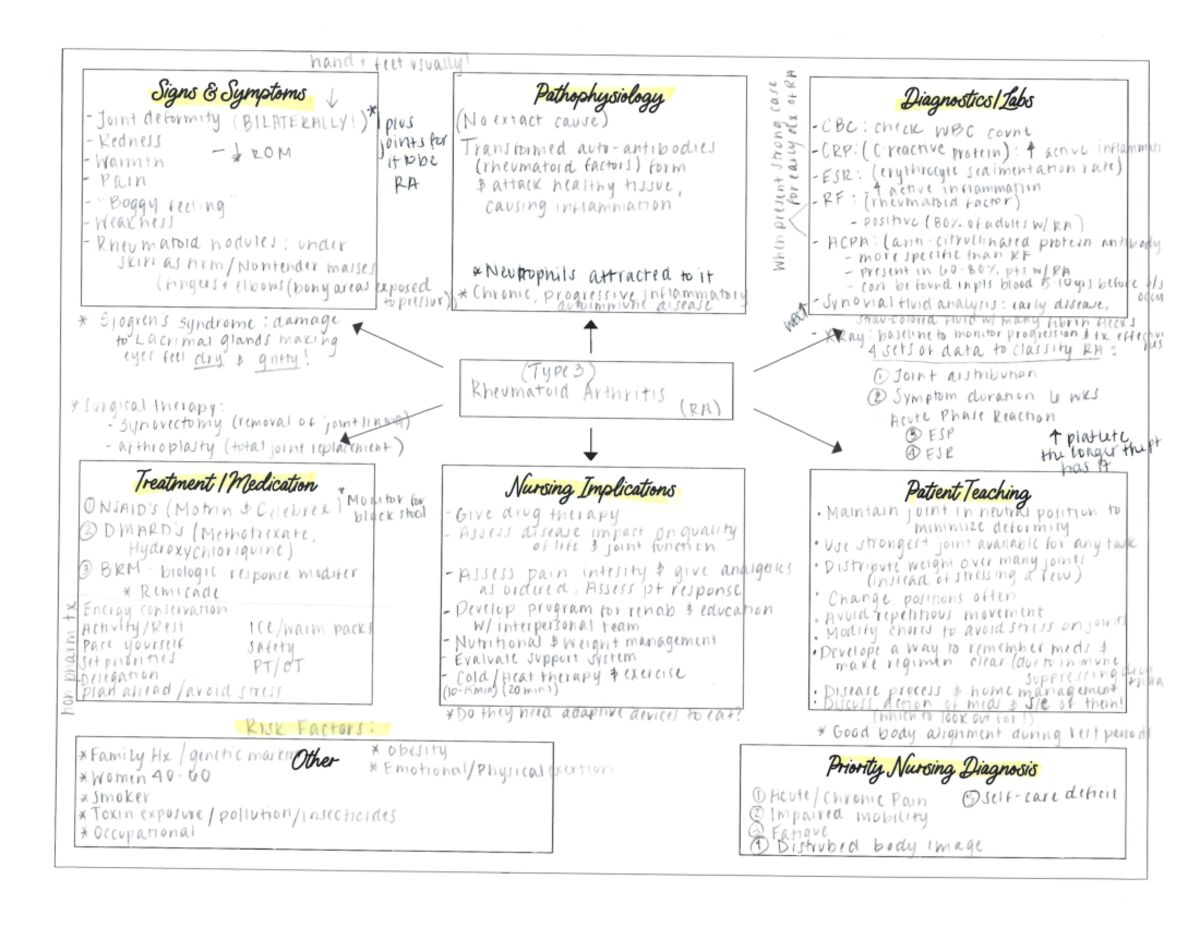 hand + feet usually!
Signs & Symptoms
- Joint deformity (BILATERALLY!)*
- Redness
- ↓ ROM
- Warmth
- Pain
- "Boggy feeling"
- Weakness
- Rheumatoid nodules: under
skin as firm/Nontender masses
(fingers + elbows (bony areas exposed
to pressur)
plus
joints for
it to be
RA
* Sjogren's syndrome: damage
to Lacrimal glands making
eyes feel dry & gritty!
Pathophysiology
(No extact cause)
Transformed auto-antibodies
(rheumatoid factors) form
& attack healthy tissue,
causing inflammation
* Neutrophils attracted to it
* Chronic, progressive inflammatory
autoimmune disease
When present strong case
for early dx of RA
Diagnostics/Labs
- CBC: check WBC count
- CRP: (C-reactive protein): ↑ active inflammati
- ESR: (erythrocyte sedimentation rate)
↑ active inflammation
- RF: (rheumatoid factor)
- positive (80% of adults w/ RA)
- ACPA: (anti-citrullinated protein antibody
- more specific than RF
- present in 60-80% pts w/RA
- can be found in pts blood 5-10 yrs before s/s
occu
- Synovial fluid analysis: early disease,
straw-colored fluid w/ many fibrin flecks
- XRay: baseline to monitor progression & tx effective
nes
4 sets of data to classify RA:
① Joint distribution
② Symptom duration 6 wks
Acute Phase Reaction
③ ESP
④ ESR
↑ platlete
the longer the pt
has it
(Type 3)
Rheumatoid Arthritis
(RA)
* Surgical therapy:
- Synovectomy (removal of joint lining)
- arthroplasty (total joint replacement)
Treatment / Medication
① NSAID's (Motrin & Celebrex)
* Monitor for
black stool
② DMARD's (Methotrexate,
Hydroxychloriquine)
③ BRM - biologic response modifer
* Remicade
non pharm tx
Energy conservation
Activity/Rest
Ice/warm packs
Pace yourself
Safety
Set priorities
PT/OT
Delegation
Plan ahead/avoid stress
Nursing Implications
- Give drug therapy
- Assess disease impact on quality
of life & joint function
- Assess pain intesity & give analgesics
as ordered, Assess pt response
- Develop program for rehab & education
w/ interpersonal team
- Nutritional & weight management
- Evaluate support system
- Cold/Heat therapy & exercise
(10-15min) (20mins)
* Do they need adaptive devices to eat?
Patient Teaching
• Maintain joint in neutral position to
minimize deformity
• Use strongest joint available for any task
• Distribute weight over many joints
(instead of stressing a few)
• Change positions often
• Avoid repetitious movement
• Modify chores to avoid stress on joints
• Develope a way to remember meds &
make regimen clear (due to immune
suppressing drug
• Disease process & home management
• Discuss action of meds & s/e of them!
(which to look out for!)
* Good body alignment during rest periods
Risk Factors:
Other
* Family Hx / genetic marker
* Women 40-60
* Smoker
* Toxin exposure / pollution/insecticides
* Occupational
* Obesity
* Emotional/Physical exertion
Priority Nursing Diagnosis
① Acute/Chronic Pain
② Impaired mobility
③ Fatigue
④ Distrubed body image
⑤ Self-care deficit